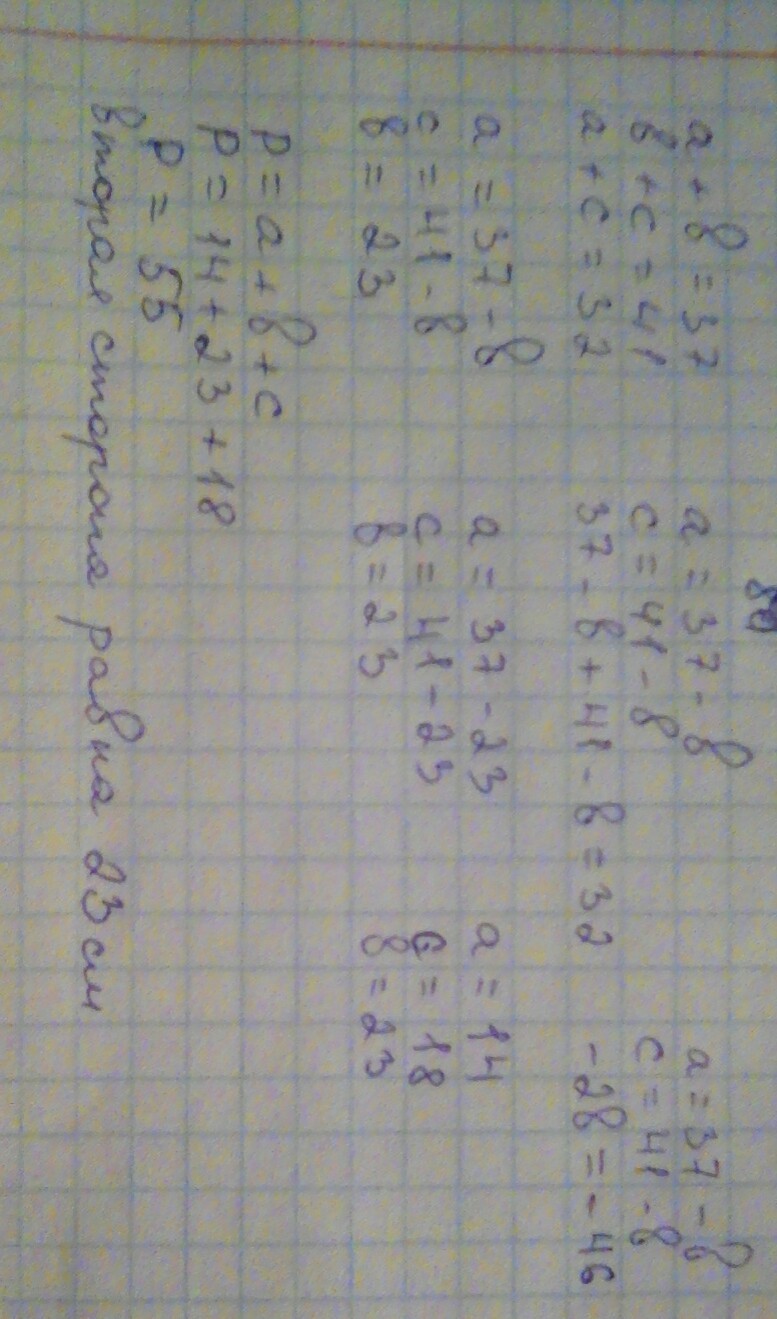 a + в = 37 a = 37 - в a = 37 - в
в + c = 41 c = 41 - в c = 41 - в
a + c = 32 37 - в + 41 - в = 32 -2в = -46
a = 37 - в a = 37 - 23 a = 14
c = 41 - в c = 41 - 23 c = 18
в = 23 в = 23 в = 23
p = a + в + c
p = 14 + 23 + 18
p = 55
вторая сторона равна 23 см